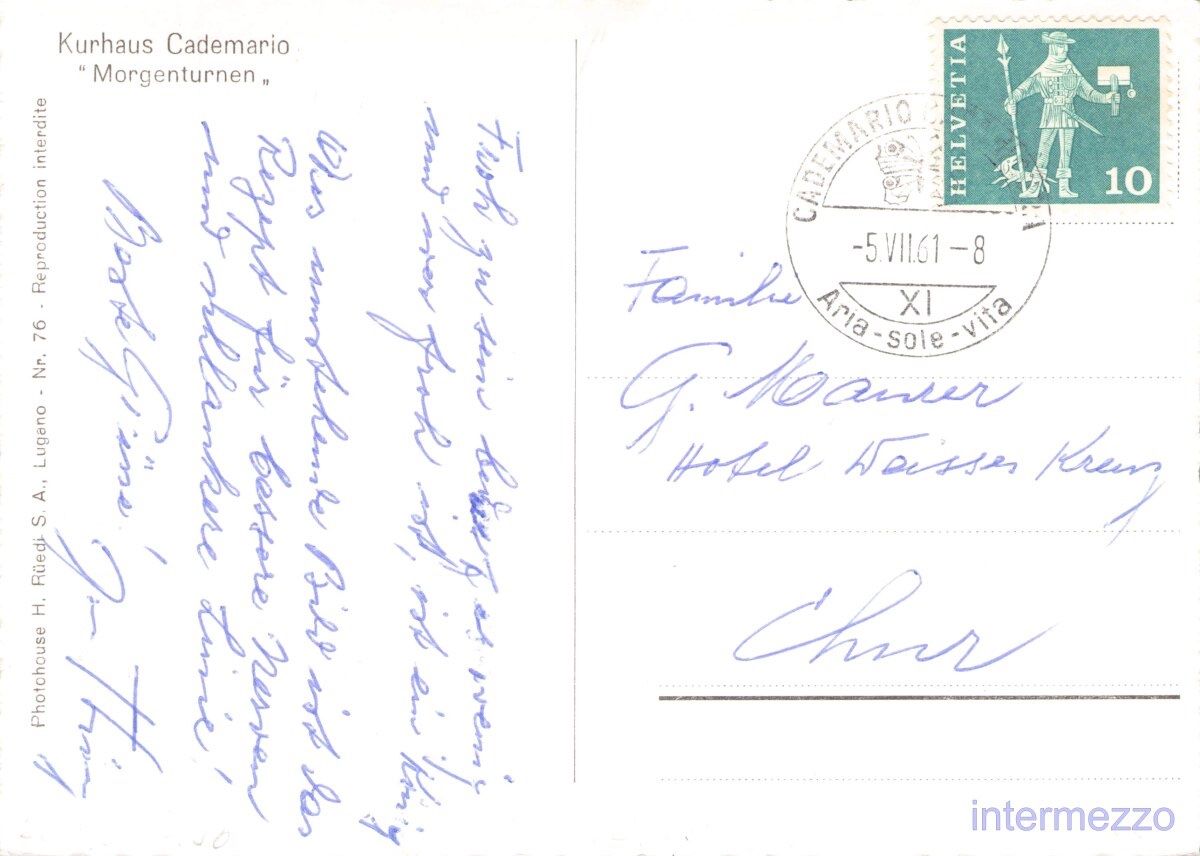 Kurhaus Cademario
“Morgenturnen„
Photohouse H. Rüedi S. A., Lugano - Nr. 76 - Reproduction interdite
Froh zu sein bedarf es wenig
und wer froh ist, ist ein König
Das umstehende Bild ist das
Rezept für bessere Nerven
und schlankere Linie!
Beste Grüsse,
HELVETIA
10
CADEMARIO
-5.VII.61-8
XI
Aria-sole-vita
Familie
G. Maurer
Hotel Weisses Kreuz
Chur
intermezzo